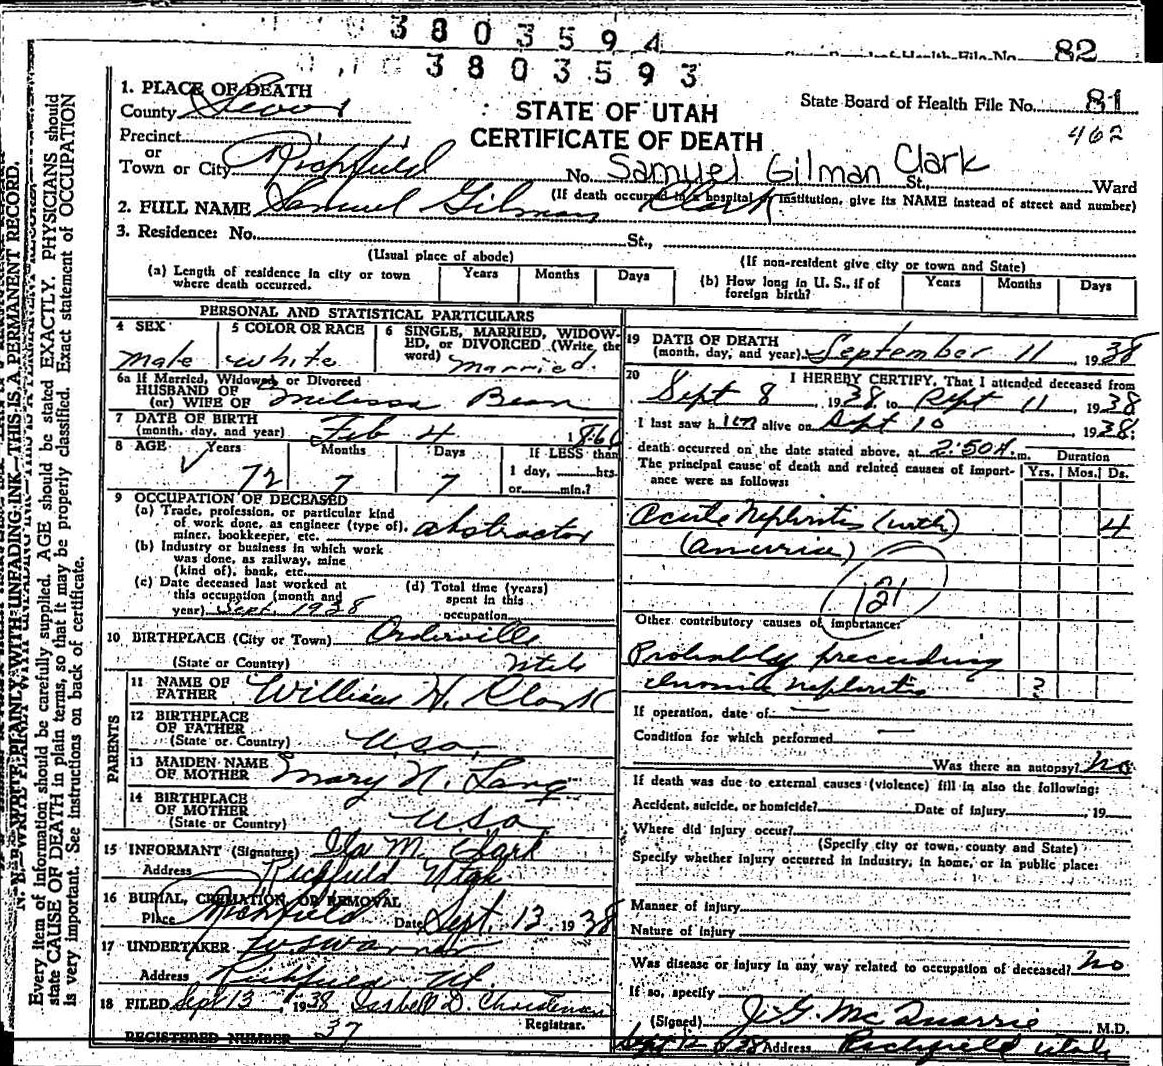 3803594
State Board of Health File No. 82
3803593
1. PLACE OF DEATH
County Sevier
STATE OF UTAH
CERTIFICATE OF DEATH
State Board of Health File No. 81
462
Precinct
or
Town or City Richfield No. Samuel Gilman Clark St., Ward
(If death occurred in a hospital or institution, give its NAME instead of street and number)
2. FULL NAME Samuel Gilman Clark
3. Residence: No. St.,
(Usual place of abode) (If non-resident give city or town and State)
(a) Length of residence in city or town where death occurred. Years Months Days
(b) How long in U. S., if of foreign birth? Years Months Days
PERSONAL AND STATISTICAL PARTICULARS
4 SEX male
5 COLOR OR RACE white
6 SINGLE, MARRIED, WIDOWED, or DIVORCED (Write the word) married.
6a If Married, Widowed, or Divorced
HUSBAND OF
(or) WIFE OF Melissa Bean
7 DATE OF BIRTH
(month, day, and year) Feb 4 1866
8 AGE Years Months Days If LESS than
72 7 7 1 day, hrs.
or min.?
9 OCCUPATION OF DECEASED
(a) Trade, profession, or particular kind
of work done, as engineer (type of),
miner, bookkeeper, etc. abstractor
(b) Industry or business in which work
was done, as railway, mine
(kind of), bank, etc.
(c) Date deceased last worked at
this occupation (month and
year) Sept. 1938
(d) Total time (years)
spent in this
occupation
10 BIRTHPLACE (City or Town) Orderville
(State or Country) Utah
PARENTS
11 NAME OF
FATHER William H. Clark
12 BIRTHPLACE
OF FATHER
(State or Country) USA
13 MAIDEN NAME
OF MOTHER Mary N. Lang
14 BIRTHPLACE
OF MOTHER
(State or Country) USA
15 INFORMANT (Signature) Ila M. Clark
Address Richfield Utah
16 BURIAL, CREMATION, OR REMOVAL
Place Richfield Date Sept. 13 1938
17 UNDERTAKER
Address Richfield Ut.
18 FILED Sept 13, 1938
Registrar.
REGISTERED NUMBER 37
19 DATE OF DEATH
(month, day, and year) September 11 1938
20 I HEREBY CERTIFY, That I attended deceased from
Sept 8 1938 to Sept 11, 1938
I last saw h im alive on Sept 10 1938;
death occurred on the date stated above, at 2:50 A. m.
The principal cause of death and related causes of importance were as follows:
Duration
Yrs. Mos. Ds.
Acute Nephritis (with) 4
(anuria)
121
Other contributory causes of importance:
Probably preceding
chronic nephritis ?
If operation, date of —
Condition for which performed —
Was there an autopsy? no
If death was due to external causes (violence) fill in also the following:
Accident, suicide, or homicide? Date of injury , 19
Where did injury occur?
(Specify city or town, county and State)
Specify whether injury occurred in industry, in home, or in public place:
Manner of injury
Nature of injury
Was disease or injury in any way related to occupation of deceased? no
If so, specify
(Signed) J. G. McQuarrie, M.D.
Sept 12 1938 Address Richfield Utah
Every item of information should be carefully supplied. AGE should be stated EXACTLY. PHYSICIANS should
state CAUSE OF DEATH in plain terms, so that it may be properly classified. Exact statement of OCCUPATION
is very important. See instructions on back of certificate.